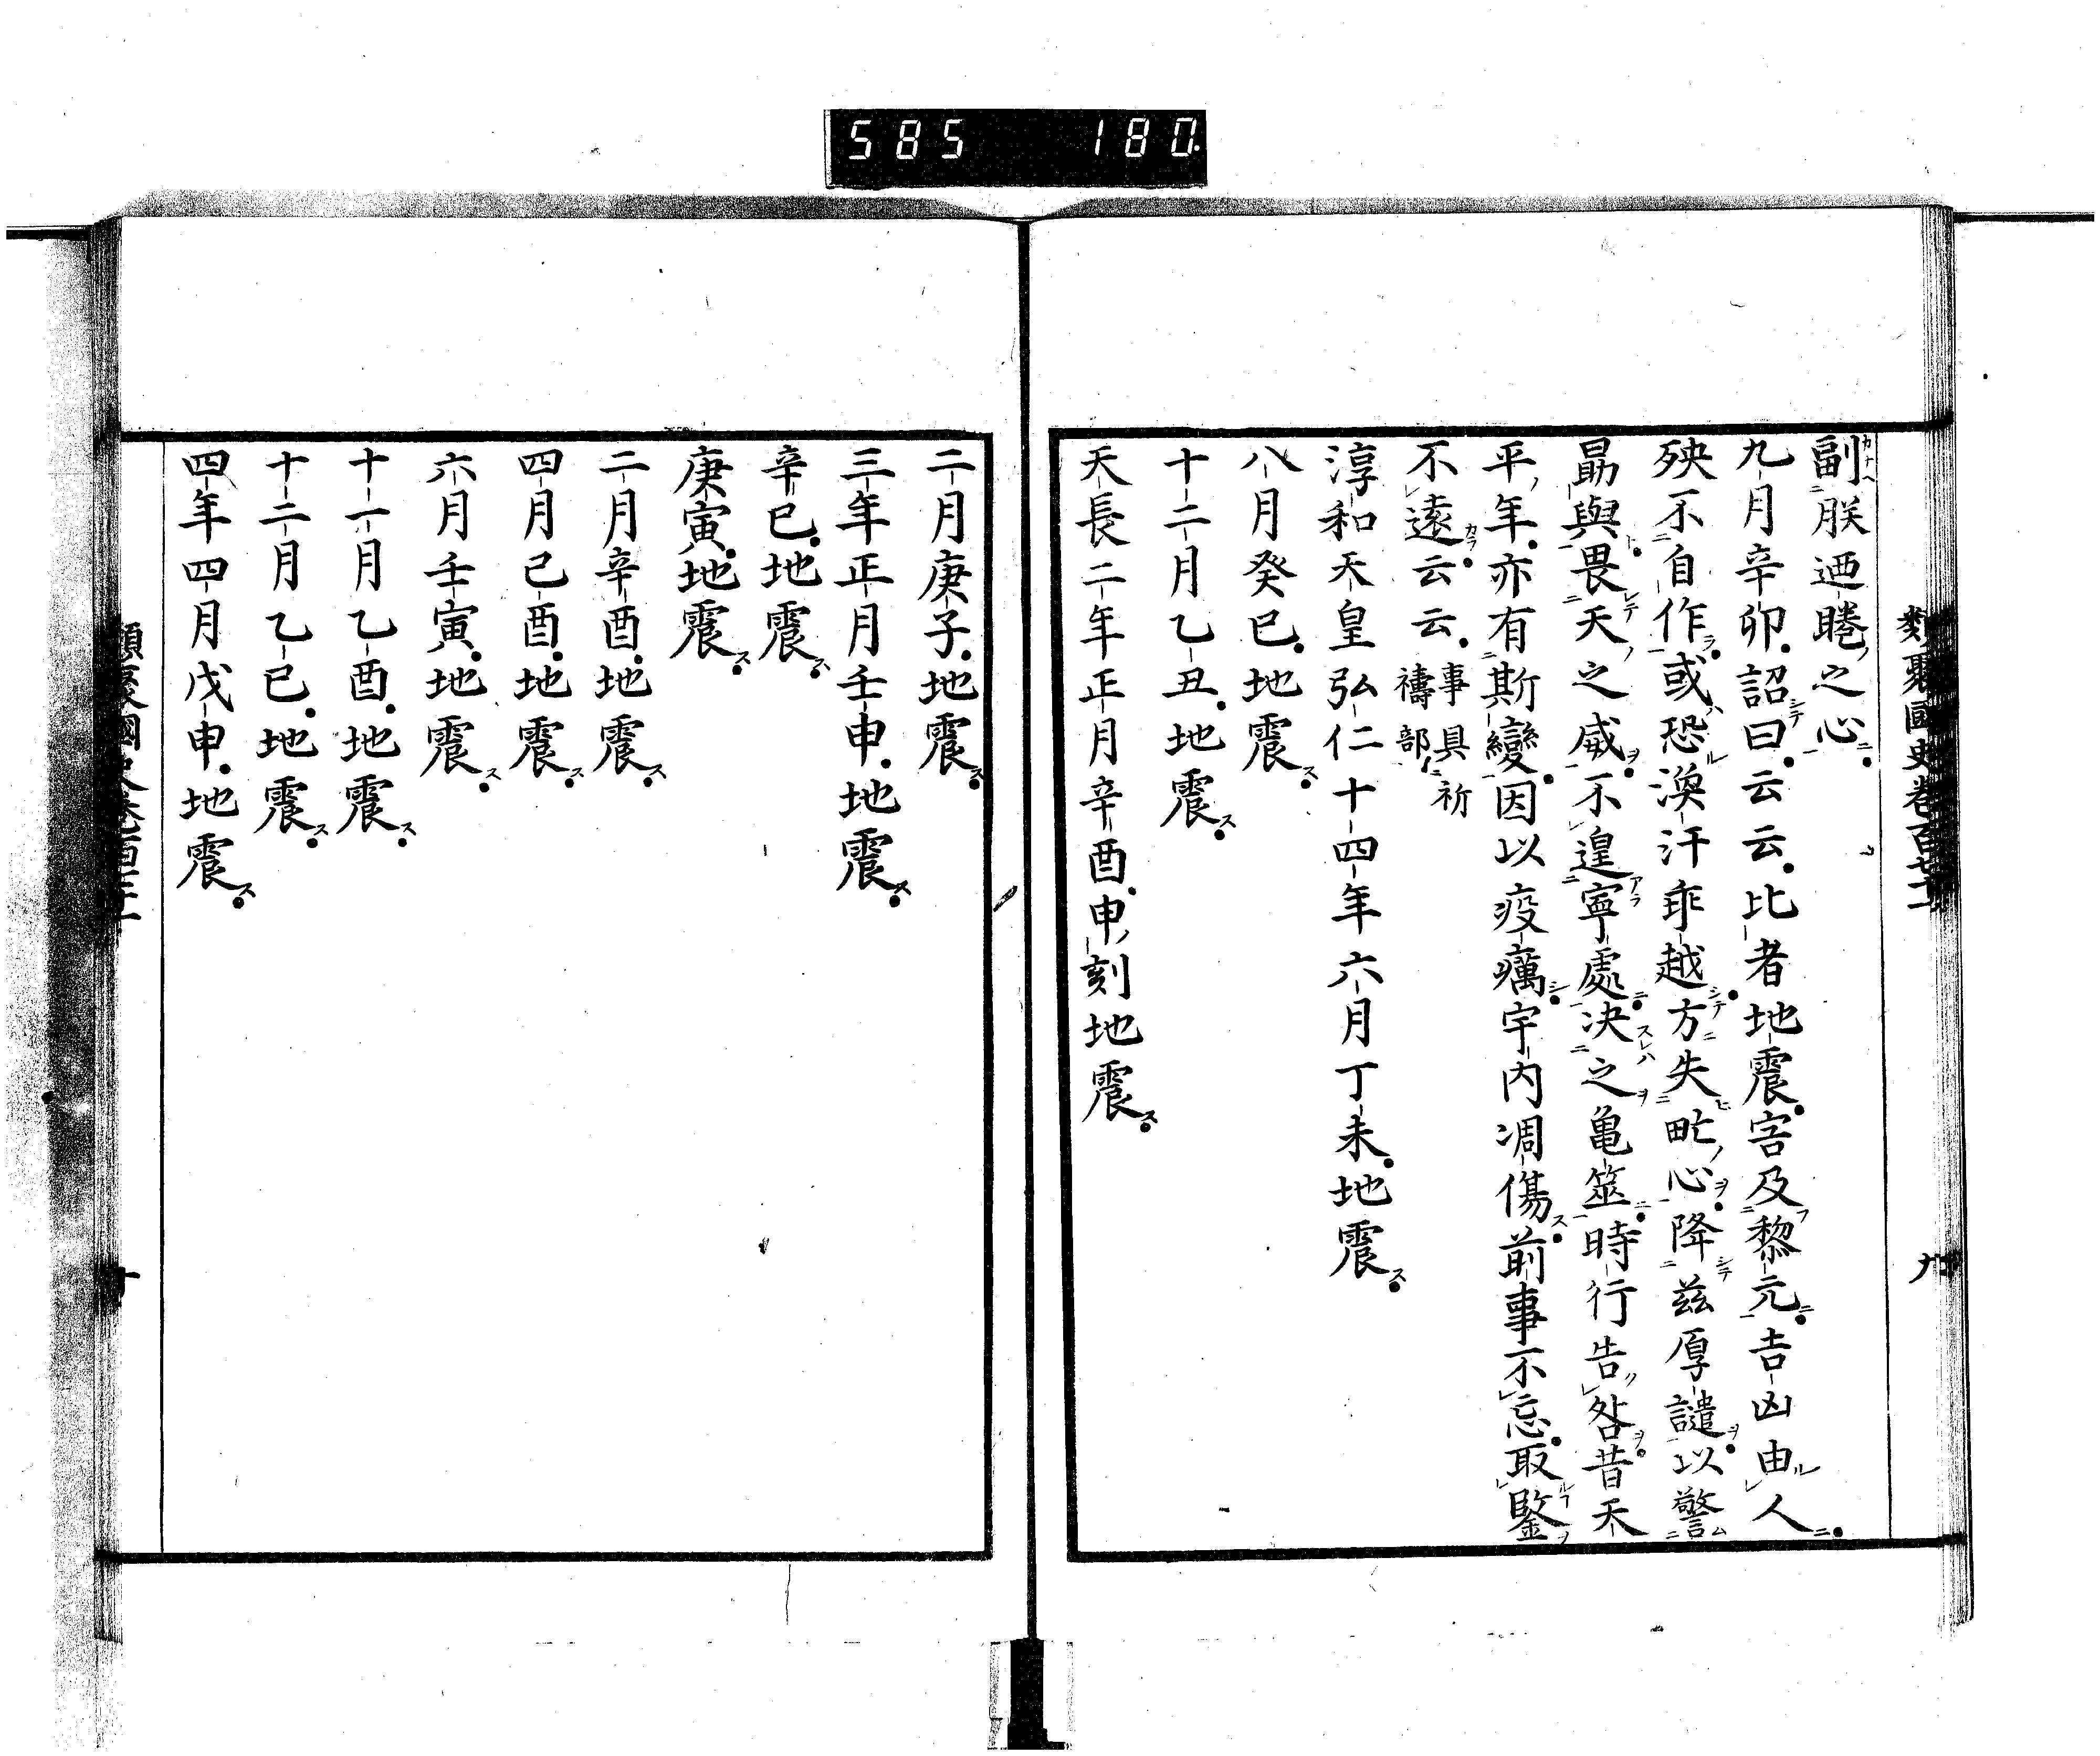 585 180
類聚國史卷百七十一
九
副朕迺睠之心
九月辛卯詔曰云云比者地震害及黎元吉凶由人
殃不自作或恐渙汗乖越方失甿心降茲厚譴以警
勗與畏天之威不遑寧處决之亀筮時行告咎昔天
平年亦有斯變因以疫癘宇内凋傷前事不忘取鑒
不遠云云事具祈
禱部
淳和天皇弘仁十四年六月丁未地震
八月癸巳地震
十二月乙丑地震
天長二年正月辛酉申刻地震
二月庚子地震
三年正月壬申地震
辛巳地震
庚寅地震
二月辛酉地震
四月己酉地震
六月壬寅地震
十一月乙酉地震
十二月乙巳地震
四年四月戊申地震